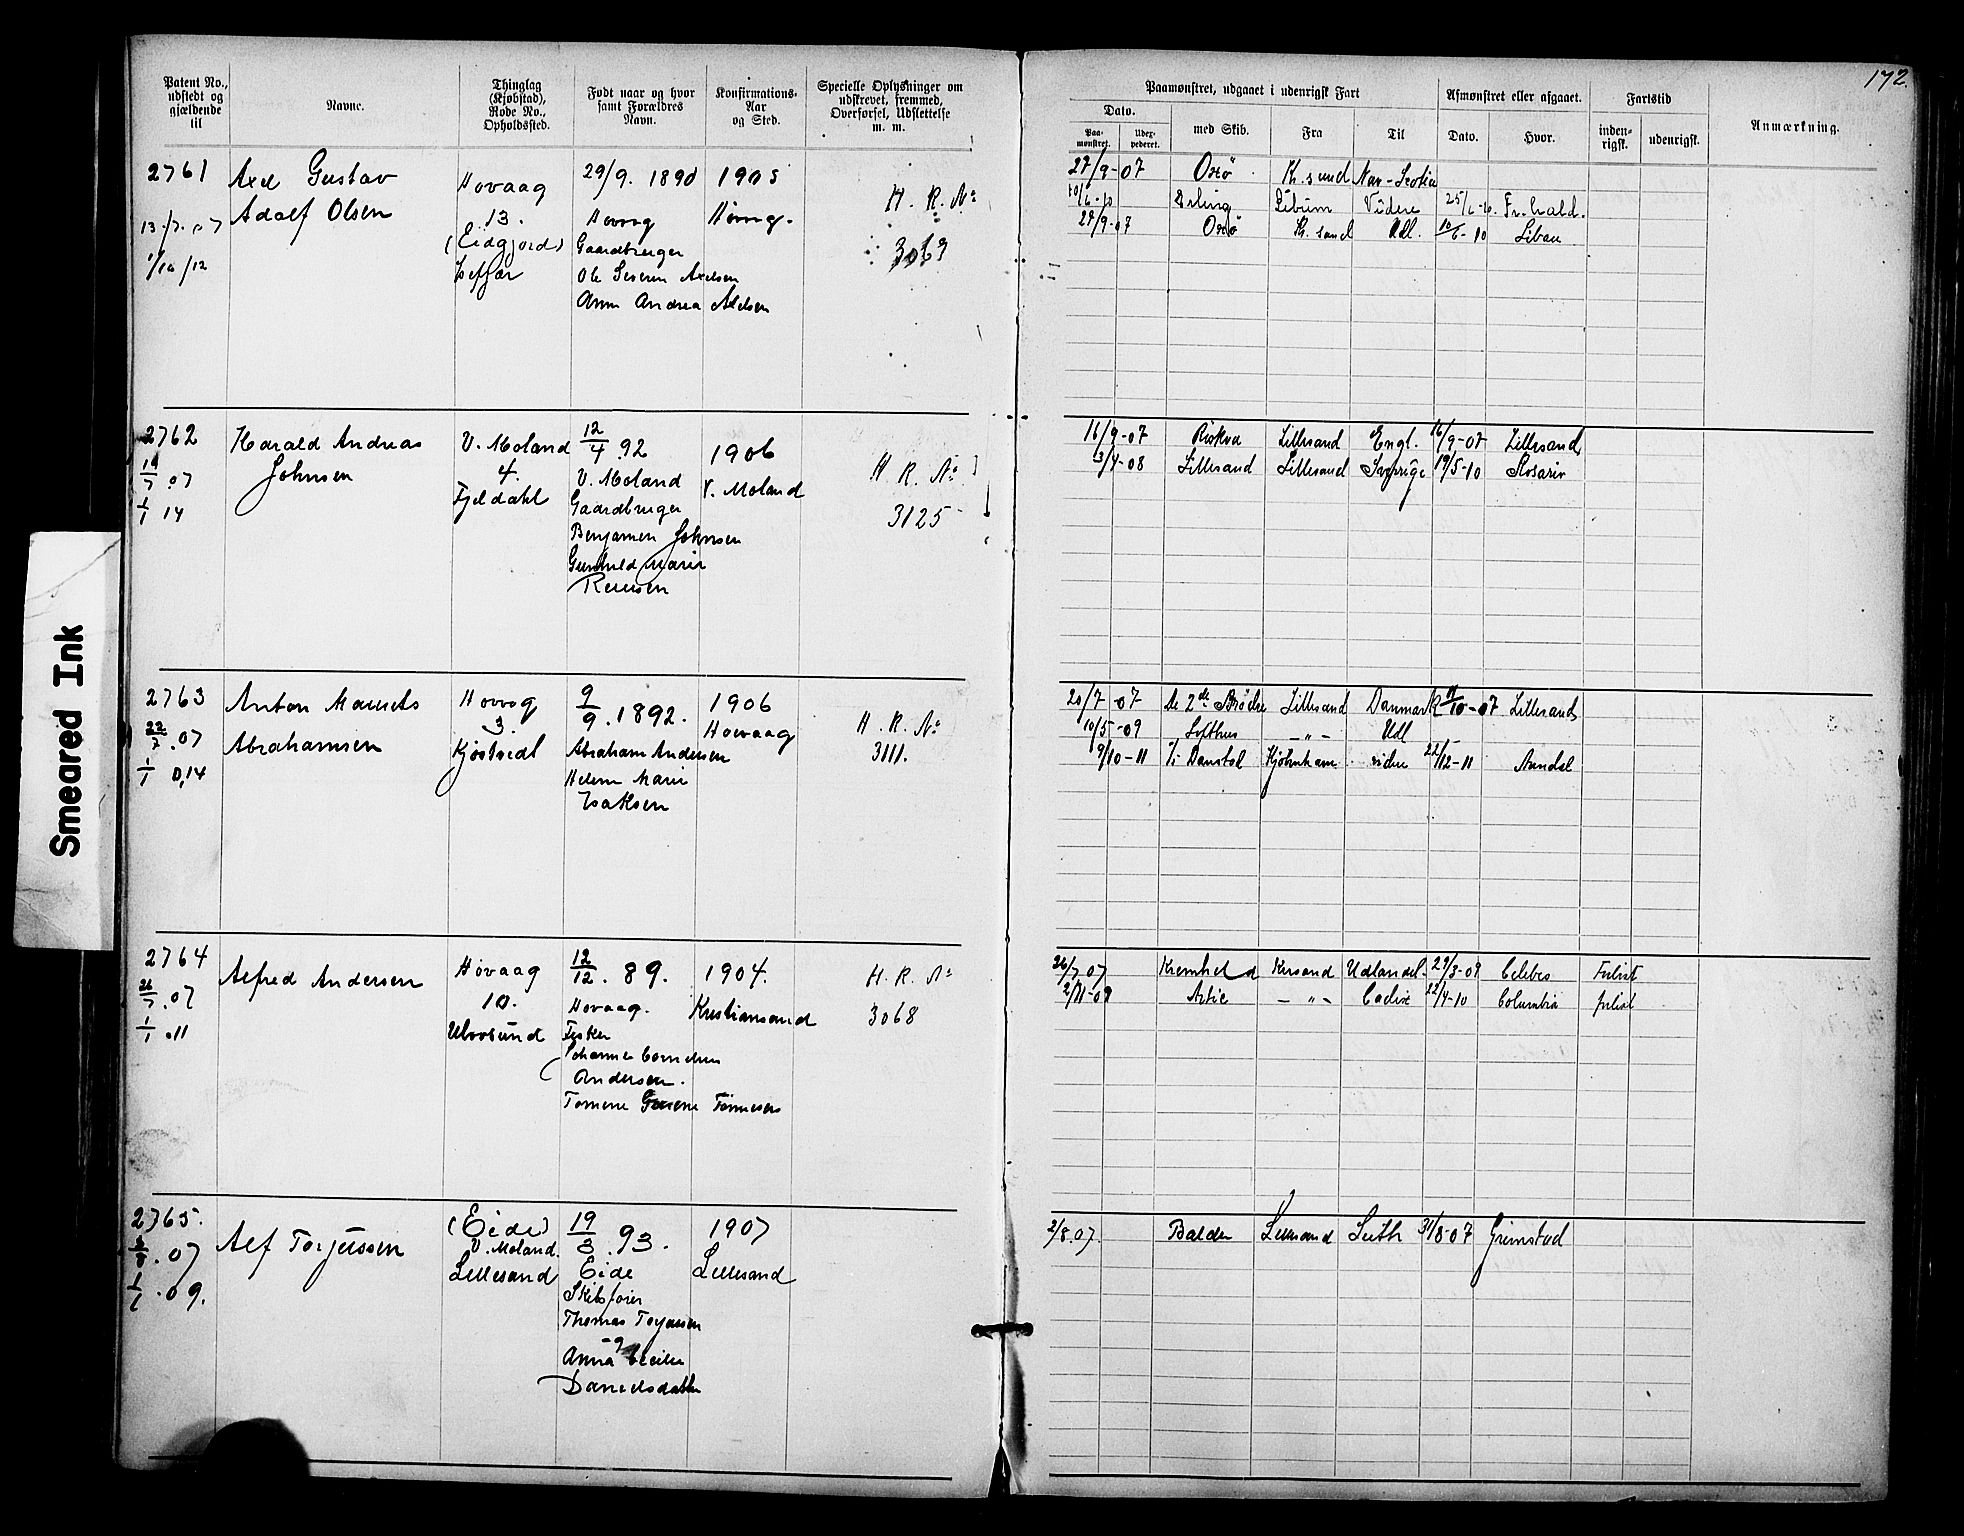 172.
Patent No., udstedt og gjældende til
Navne.
Thinglag (Kjøbstad), Rode No., Opholdssted.
Født naar og hvor samt Forældres Navn.
Konfirmations-Aar og Sted.
Specielle Oplysninger om udskrevet, fremmed, Overførsel, Udslettelse m. m.
Paamønstret, udgaaet i udenrigsk Fart
Afmønstret eller afgaaet.
Fartstid
Anmærkning.
Dato.
Paa-mønstret.
Udex-pederet.
med Skib.
Fra
Til
Dato.
Hvor.
inden-rigsk.
udenrigsk.
2761
13./7. 07
1/10 /12
Axel Gustav
Adolf Olsen
Hovaag
13.
(Eidgjord)
29/9. 1890
Hovog
Gaardbruger
Ole Severin Axelsen
Anna Andrea
1905
H. R. No
3063
27/9-07 Osvö Kr. sand
10/6-10 Erling Libau Videre 25/6-10. Fr.hald.
27/9-07 Osvö Kr. sand Udl. 10/6-10 Libau
2762
19/7 .07
1/1 14
Harald Andreas
Johnsen
V. Moland
4.
Fjeldahl
12/4 .92
V. Moland
Gaardbruger
Benjamin Johnsen
Gunhild Marie
1906
V. Moland
H. R. No
3125
16/9-07 Lillesand Engl. 16/9-07 Lillesand
3/4-08 Lillesand Lillesand Sverige 19/5-10 Rosario
2763
22/7 .07
1/1 0,14
Anton Maurits
Abrahamsen
Hovog
3.
Kjøstvedt
9/9 . 1892.
Abraham Andersen
Helene Marie
Isaksen
1906
Hoevaag
H. R. No
3111.
20/7 -07 De 2de Brødre Lillesand Danmark 11/10-07 Lillesand
10/5-09 - " - Udl
9/10-11 Kjöbnham videre 22/12-11 Arendal
2764
26/7 .07
1/1 .11
Alfred Andersen
Høvaag
10.
Ulvøsund
12/12 . 89.
Hovaag.
Fisker
Andersen.
1904.
Kristiansand
H. R. No
3068
26/7 07 Krsand Udlandet. 29/3-09 Celebes Forlist
2/11-09 Artic - " - Cadix 22/4-10 Columbia forlist
2765.
2/8 . 07
1/1 .09.
Alf Torjussen
(Eide)
V. Moland.
Lillesand
19/3 . 93.
Eide
Skibsfører
Thomas Torjussen
Anna Cecilie
Danielsdatter
1907
Lillesand
2/8.07 Balder Lillesand Leith 31/8-07 Grimstad
Smeared Ink